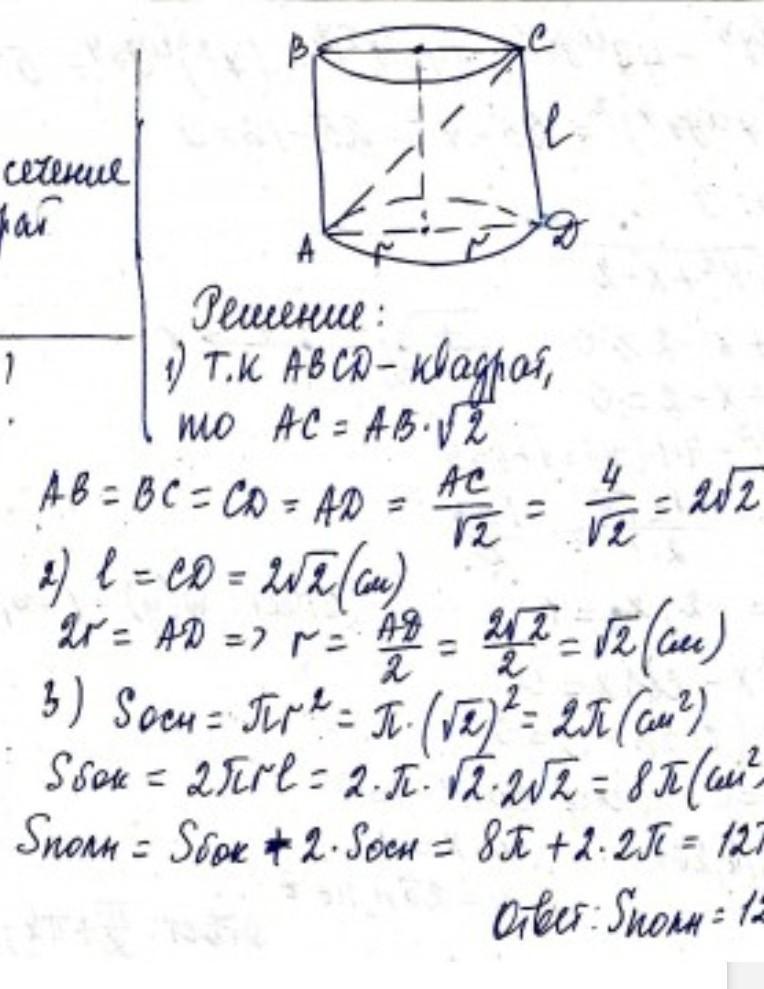 B C
l
A r r D
сечение
рат
Решение:
1) Т.к ABCD - квадрат,
то AC = AB · √2
AB = BC = CD = AD = AC/√2 = 4/√2 = 2√2
2) l = CD = 2√2 (см)
2r = AD => r = AD/2 = 2√2/2 = √2 (см)
3) Sосн = πr² = π · (√2)² = 2π (см²)
Sбок = 2πrl = 2·π·√2·2√2 = 8π (см²
Sполн = Sбок + 2·Sосн = 8π + 2·2π = 12π
Ответ: Sполн = 12